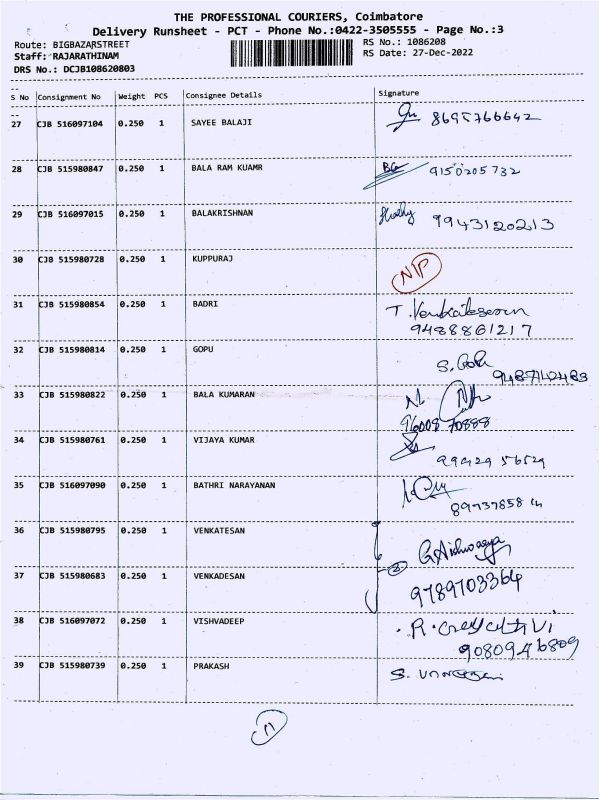 THE PROFESSIONAL COURIERS, Coimbatore
Delivery Runsheet - PCT - Phone No.:0422-3505555 - Page No.:3
Route: BIGBAZARSTREET RS No.: 1086208
Staff: RAJARATHINAM RS Date: 27-Dec-2022
DRS No.: DCJB108620803
S No Consignment No Weight PCS Consignee Details Signature
27 CJB 516097104 0.250 1 SAYEE BALAJI 8695766642
28 CJB 515980847 0.250 1 BALA RAM KUAMR 9150205732
29 CJB 516097015 0.250 1 BALAKRISHNAN 9943120213
30 CJB 515980728 0.250 1 KUPPURAJ NIP
31 CJB 515980854 0.250 1 BADRI T. Venkatesan
9488861217
32 CJB 515980814 0.250 1 GOPU S. Gopu
9487142483
33 CJB 515980822 0.250 1 BALA KUMARAN
96008 70888
34 CJB 515980761 0.250 1 VIJAYA KUMAR
35 CJB 516097090 0.250 1 BATHRI NARAYANAN
36 CJB 515980795 0.250 1 VENKATESAN G. Aishwarya
37 CJB 515980683 0.250 1 VENKADESAN 9789703364
38 CJB 516097072 0.250 1 VISHVADEEP
9080946809
39 CJB 515980739 0.250 1 PRAKASH
11